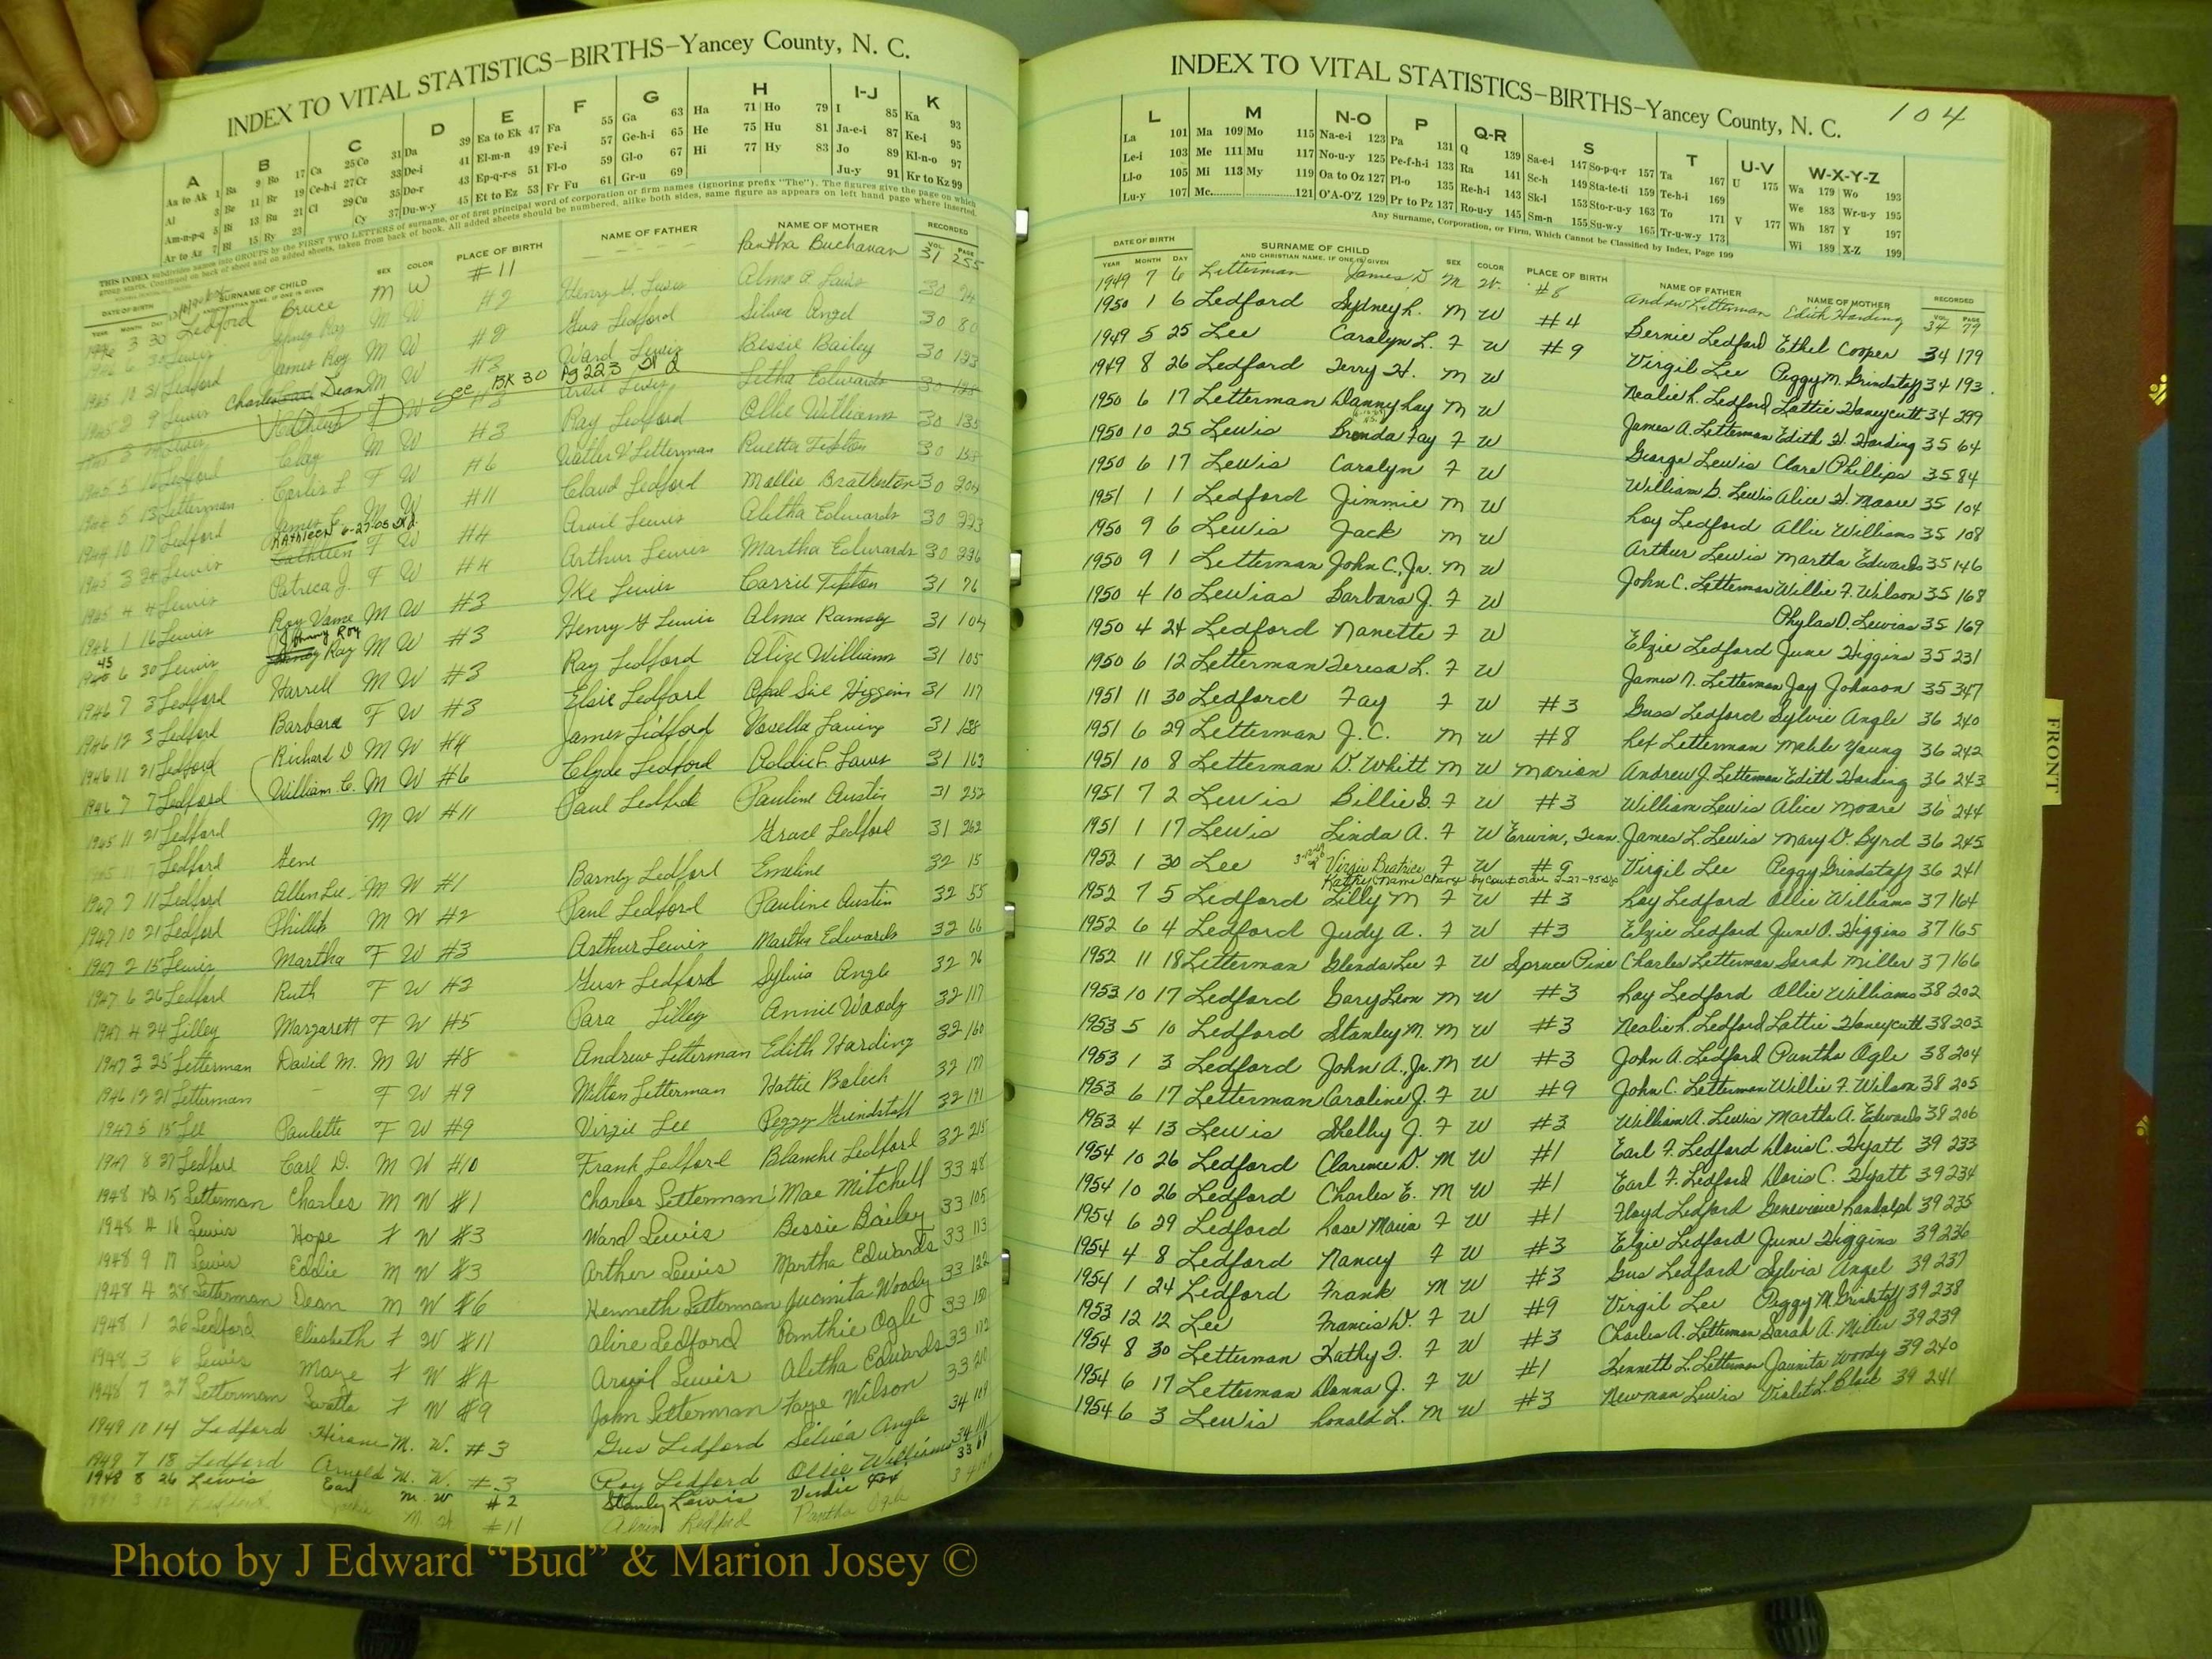 INDEX TO VITAL STATISTICS–BIRTHS–Yancey County, N. C.
A B C D E F G H I-J K
Aa to Ak 1 Ba 9 Bo 17 Ca 25 Co 31 Da 39 Ea to Ek 47 Fa 55 Ga 63 Ha 71 Ho 79 I 85 Ka 93
Al 3 Be 11 Br 19 Ce-h-i 27 Cr 33 De-i 41 El-m-n 49 Fe-i 57 Ge-h-i 65 He 75 Hu 81 Ja-e-i 87 Ke-i 95
Am-n-p-q 5 Bi 13 Bu 21 Cl 29 Cu 35 Do-r 43 Ep-q-r-s 51 Fl-o 59 Gl-o 67 Hi 77 Hy 83 Jo 89 Kl-n-o 97
Ar to Az 7 Bl 15 By 23 Cy 37 Du-w-y 45 Et to Ez 53 Fr Fu 61 Gr-u 69 Ju-y 91 Kr to Kz 99
THIS INDEX subdivides names into GROUPS by the FIRST TWO LETTERS of surname, or of first principal word of corporation or firm names (ignoring prefix "The"). The figures give the page on which
group starts. Continued on back of sheet and on added sheets, taken from back of book. All added sheets should be numbered, alike both sides, same figure as appears on left hand page where inserted.
DATE OF BIRTH SURNAME OF CHILD SEX COLOR PLACE OF BIRTH NAME OF FATHER NAME OF MOTHER RECORDED
YEAR MONTH DAY AND CHRISTIAN NAME, IF ONE IS GIVEN VOL. PAGE
3 30 Ledford Bruce M W #11 Pantha Buchanan 31 255
6 30 Lewis M W #2 Henry G. Lewis Alma 30
10 31 Ledford James Roy M W #2 Gus Ledford Silvia Angel 30 80
9 Lewis Charles Dean M W #3 Ward Lewis Bessie Bailey 30 193
See BK 30 Pg 223 Arvil Lewis Letha Edwards 30
Ledford Clay M W #3 Ray Ledford Ollie Williams 30 135
5 13 Letterman F W #6 Walter V Letterman Ruetta Tipton 30
10 17 Ledford M W #11 Claud Ledford Mollie Bratherton 30 204
3 24 Lewis Kathleen 6-27-03 F W #4 Arvil Lewis Aletha Edwards 30 223
1945 4 4 Lewis Patricia J. F W #4 Arthur Lewis Martha Edwards 30 236
1946 1 16 Lewis Roy Vance M W #3 Ike Lewis Carrie Tipton 31 76
45 6 30 Lewis Johnny Roy M W #3 Henry G Lewis Alma Ramsey 31 104
1946 7 3 Ledford Harrell M W #3 Ray Ledford Alize Williams 31 105
1946 12 3 Ledford Barbara F W #3 Elsie Ledford Opal Sie Higgins 31 117
1946 11 21 Ledford Richard D M W #4 James Ledford Vosella Laving 31 138
1946 7 7 Ledford William C. M W #6 Clyde Ledford Addie F. Laws 31 163
1945 11 21 Ledford M W #11 Paul Ledford Pauline Austin 31 252
11 7 Ledford Gene Grace Ledford 31 262
1947 7 11 Ledford Allen Lee M W #1 Barney Ledford Emeline 32 15
1947 10 21 Ledford Phillip M W #2 Paul Ledford Pauline Austin 32 55
1947 2 15 Lewis Martha F W #3 Arthur Lewis Martha Edwards 32 66
1947 6 26 Ledford Ruth F W #3 Gus Ledford Sylvia Angle 32 76
1947 4 24 Lilley Margarett F W #5 Para Lilley Annie Woody 32 117
1947 3 25 Letterman David M. M W #8 Andrew Letterman Edith Harding 32 160
1946 12 21 Letterman – F W #9 Milton Letterman Hattie Balech 32 171
1947 5 15 Lee Paulette F W #9 Virgie Lee Peggy Grindstaff 32 191
1947 8 27 Ledford Carl D. M W #10 Frank Ledford Blanche Ledford 32 215
1948 12 15 Letterman Charles M W #1 Charles Letterman Mae Mitchell 33 48
1948 4 16 Lewis Hope F W #3 Ward Lewis Bessie Bailey 33 105
1948 9 17 Lewis Eddie M W #3 Arther Lewis Martha Edwards 33 113
1948 4 28 Letterman Dean M W #6 Kenneth Letterman Juanita Woody 33 122
1948 1 26 Ledford Elizabeth F W #11 Alire Ledford Panthie Ogle 33 150
1948 3 6 Lewis Maye F W #4 Arvil Lewis Aletha Edwards 33 172
1948 7 27 Letterman F W #9 John Letterman Faye Wilson 33
1949 10 14 Ledford Hiram M. W. #3 Gus Ledford Silvia Angle 34 109
1949 7 18 Ledford Arnold M. W. #3 Roy Ledford Ollie Williams 34 111
1948 8 26 Lewis Earl M. W #2 Stanley Lewis Verdie Fox 33 69
Ledford M. W #11 Alvin Ledford Pantha Ogle 34
INDEX TO VITAL STATISTICS–BIRTHS–Yancey County, N. C. 104
L M N-O P Q-R S T U-V W-X-Y-Z
La 101 Ma 109 Mo 115 Na-e-i 123 Pa 131 Q 139 Sa-e-i 147 So-p-q-r 157 Ta 167 U 175 Wa 179 Wo 193
Le-i 103 Me 111 Mu 117 No-u-y 125 Pe-f-h-i 133 Ra 141 Sc-h 149 Sta-te-ti 159 Te-h-i 169 We 183 Wr-u-y 195
Ll-o 105 Mi 113 My 119 Oa to Oz 127 Pl-o 135 Re-h-i 143 Sk-l 153 Sto-r-u-y 163 To 171 V 177 Wh 187 Y 197
Lu-y 107 Mc 121 O'A-O'Z 129 Pr to Pz 137 Ro-u-y 145 Sm-n 155 Su-w-y 165 Tr-u-w-y 173 Wi 189 X-Z 199
Any Surname, Corporation, or Firm, Which Cannot be Classified by Index, Page 199
DATE OF BIRTH SURNAME OF CHILD SEX COLOR PLACE OF BIRTH NAME OF FATHER NAME OF MOTHER RECORDED
YEAR MONTH DAY AND CHRISTIAN NAME, IF ONE IS GIVEN VOL. PAGE
1949 7 6 Letterman James D. M W. #8 Andrew Letterman Edith Harding 34 79
1950 1 6 Ledford Sydney L. M W #4 Bernie Ledford Ethel Cooper 34 179
1949 5 25 Lee Caralyn L. F W #9 Virgil Lee Peggy M. Grindstaff 34 193
1949 8 26 Ledford Terry H. M W Nealie L. Ledford Lottie Haneycutt 34 299
1950 6 17 Letterman Danny Lay M W James A. Letterman Edith H. Harding 35 64
1950 10 25 Lewis Brenda Fay F W George Lewis Clara Phillips 35 84
1950 6 17 Lewis Caralyn F W William G. Lewis Alice H. Moore 35 104
1951 1 1 Ledford Jimmie M W Loy Ledford Allie Williams 35 108
1950 9 6 Lewis Jack M W Arthur Lewis Martha Edwards 35 146
1950 9 1 Letterman John C., Jr. M W John C. Letterman Willie F. Wilson 35 168
1950 4 10 Lewias Barbara J. F W Phylas D. Lewias 35 169
1950 4 24 Ledford Nanette F W Elzie Ledford June Higgins 35 231
1950 6 12 Letterman Teresa L. F W James N. Letterman Jay Johnson 35 347
1951 11 30 Ledford Fay F W #3 Guss Ledford Sylvie Angle 36 240
1951 6 29 Letterman J. C. M W #8 Lex Letterman Mable Young 36 242
1951 10 8 Letterman D. Whitt M W Marion Andrew J. Letterman Edith Harding 36 243
1951 7 2 Lewis Billie G. F W #3 William Lewis Alice Moore 36 244
1951 1 17 Lewis Linda A. F W Erwin, Tenn. James L. Lewis Mary V. Byrd 36 245
1952 1 30 Lee Virgie Beatrice F W #9 Virgil Lee Peggy Grindstaff 36 241
Kathy Name Chang by Court order 2-27-95
1952 7 5 Ledford Lilly M F W #3 Loy Ledford Ollie Williams 37 164
1952 6 4 Ledford Judy A. F W #3 Elzie Ledford June O. Higgins 37 165
1952 11 18 Letterman Glenda Lee F W Spruce Pine Charles Letterman Sarah Miller 37 166
1953 10 17 Ledford Gary Leon M W #3 Loy Ledford Ollie Williams 38 202
1953 5 10 Ledford Stanley M. M W #3 Nealie L. Ledford Lottie Haneycutt 38 203
1953 1 3 Ledford John A., Jr. M W #3 John A. Ledford Pantha Ogle 38 204
1953 6 17 Letterman Caroline J. F W #9 John C. Letterman Willie F. Wilson 38 205
1953 4 13 Lewis Shelby J. F W #3 William A. Lewis Martha A. Edwards 38 206
1954 10 26 Ledford Clarence D. M W #1 Earl F. Ledford Doris C. Hyatt 39 233
1954 10 26 Ledford Charles E. M W #1 Earl F. Ledford Doris C. Hyatt 39 234
1954 6 29 Ledford Rose Maria F W #1 Floyd Ledford Genevieve Randolph 39 235
1954 4 8 Ledford Nancy F W #3 Elzie Ledford June Higgins 39 236
1954 1 24 Ledford Frank M W #3 Gus Ledford Sylvia Angel 39 237
1953 12 12 Lee Francis W. F W #9 Virgil Lee Peggy M. Grindstaff 39 238
1954 8 30 Letterman Kathy F. F W #3 Charles A. Letterman Sarah A. Miller 39 239
1954 6 17 Letterman Donna J. F W #1 Kennett L. Letterman Jaunita Woody 39 240
1954 6 3 Lewis Ronald L. M W #3 Newman Lewis Violet L. Blair 39 241
FRONT
Photo by J Edward “Bud” & Marion Josey ©